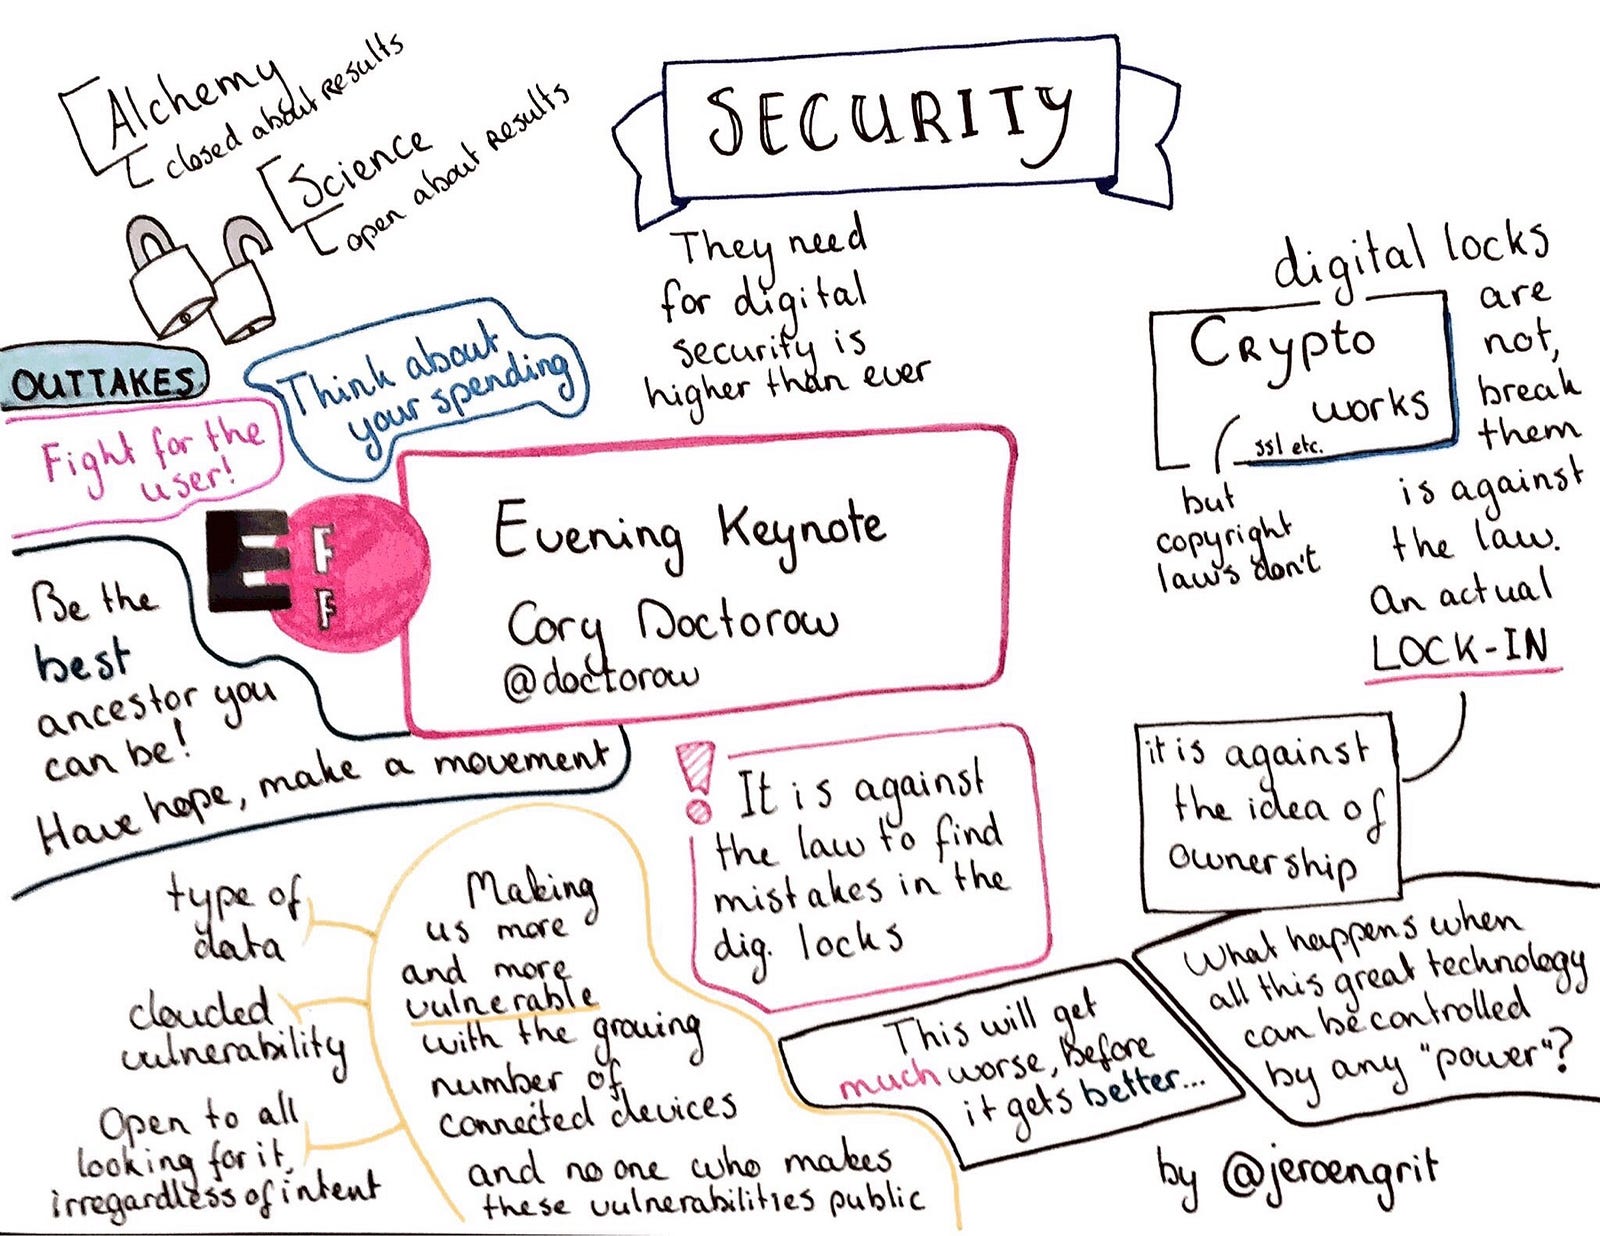 Alchemy
closed about results
Science
open about results
SECURITY
They need
for digital
security is
higher than ever
digital locks
are
not,
break
them
is against
the law.
An actual
LOCK-IN
Crypto
works
ssl etc.
but
copyright
laws don't
OUTTAKES
Think about
your spending
Fight for the
user!
E
F
F
Evening Keynote
Cory Doctorow
@doctorow
Be the
best
ancestor you
can be!
Have hope, make a movement
!
It is against
the law to find
mistakes in the
dig. locks
it is against
the idea of
ownership
type of
data
clouded
vulnerability
Open to all
looking for it,
irregardless of intent
Making
us more
and more
vulnerable
with the growing
number of
connected devices
and no one who makes
these vulnerabilities public
This will get
much worse, before
it gets better...
What happens when
all this great technology
can be controlled
by any "power"?
by @jeroengrit